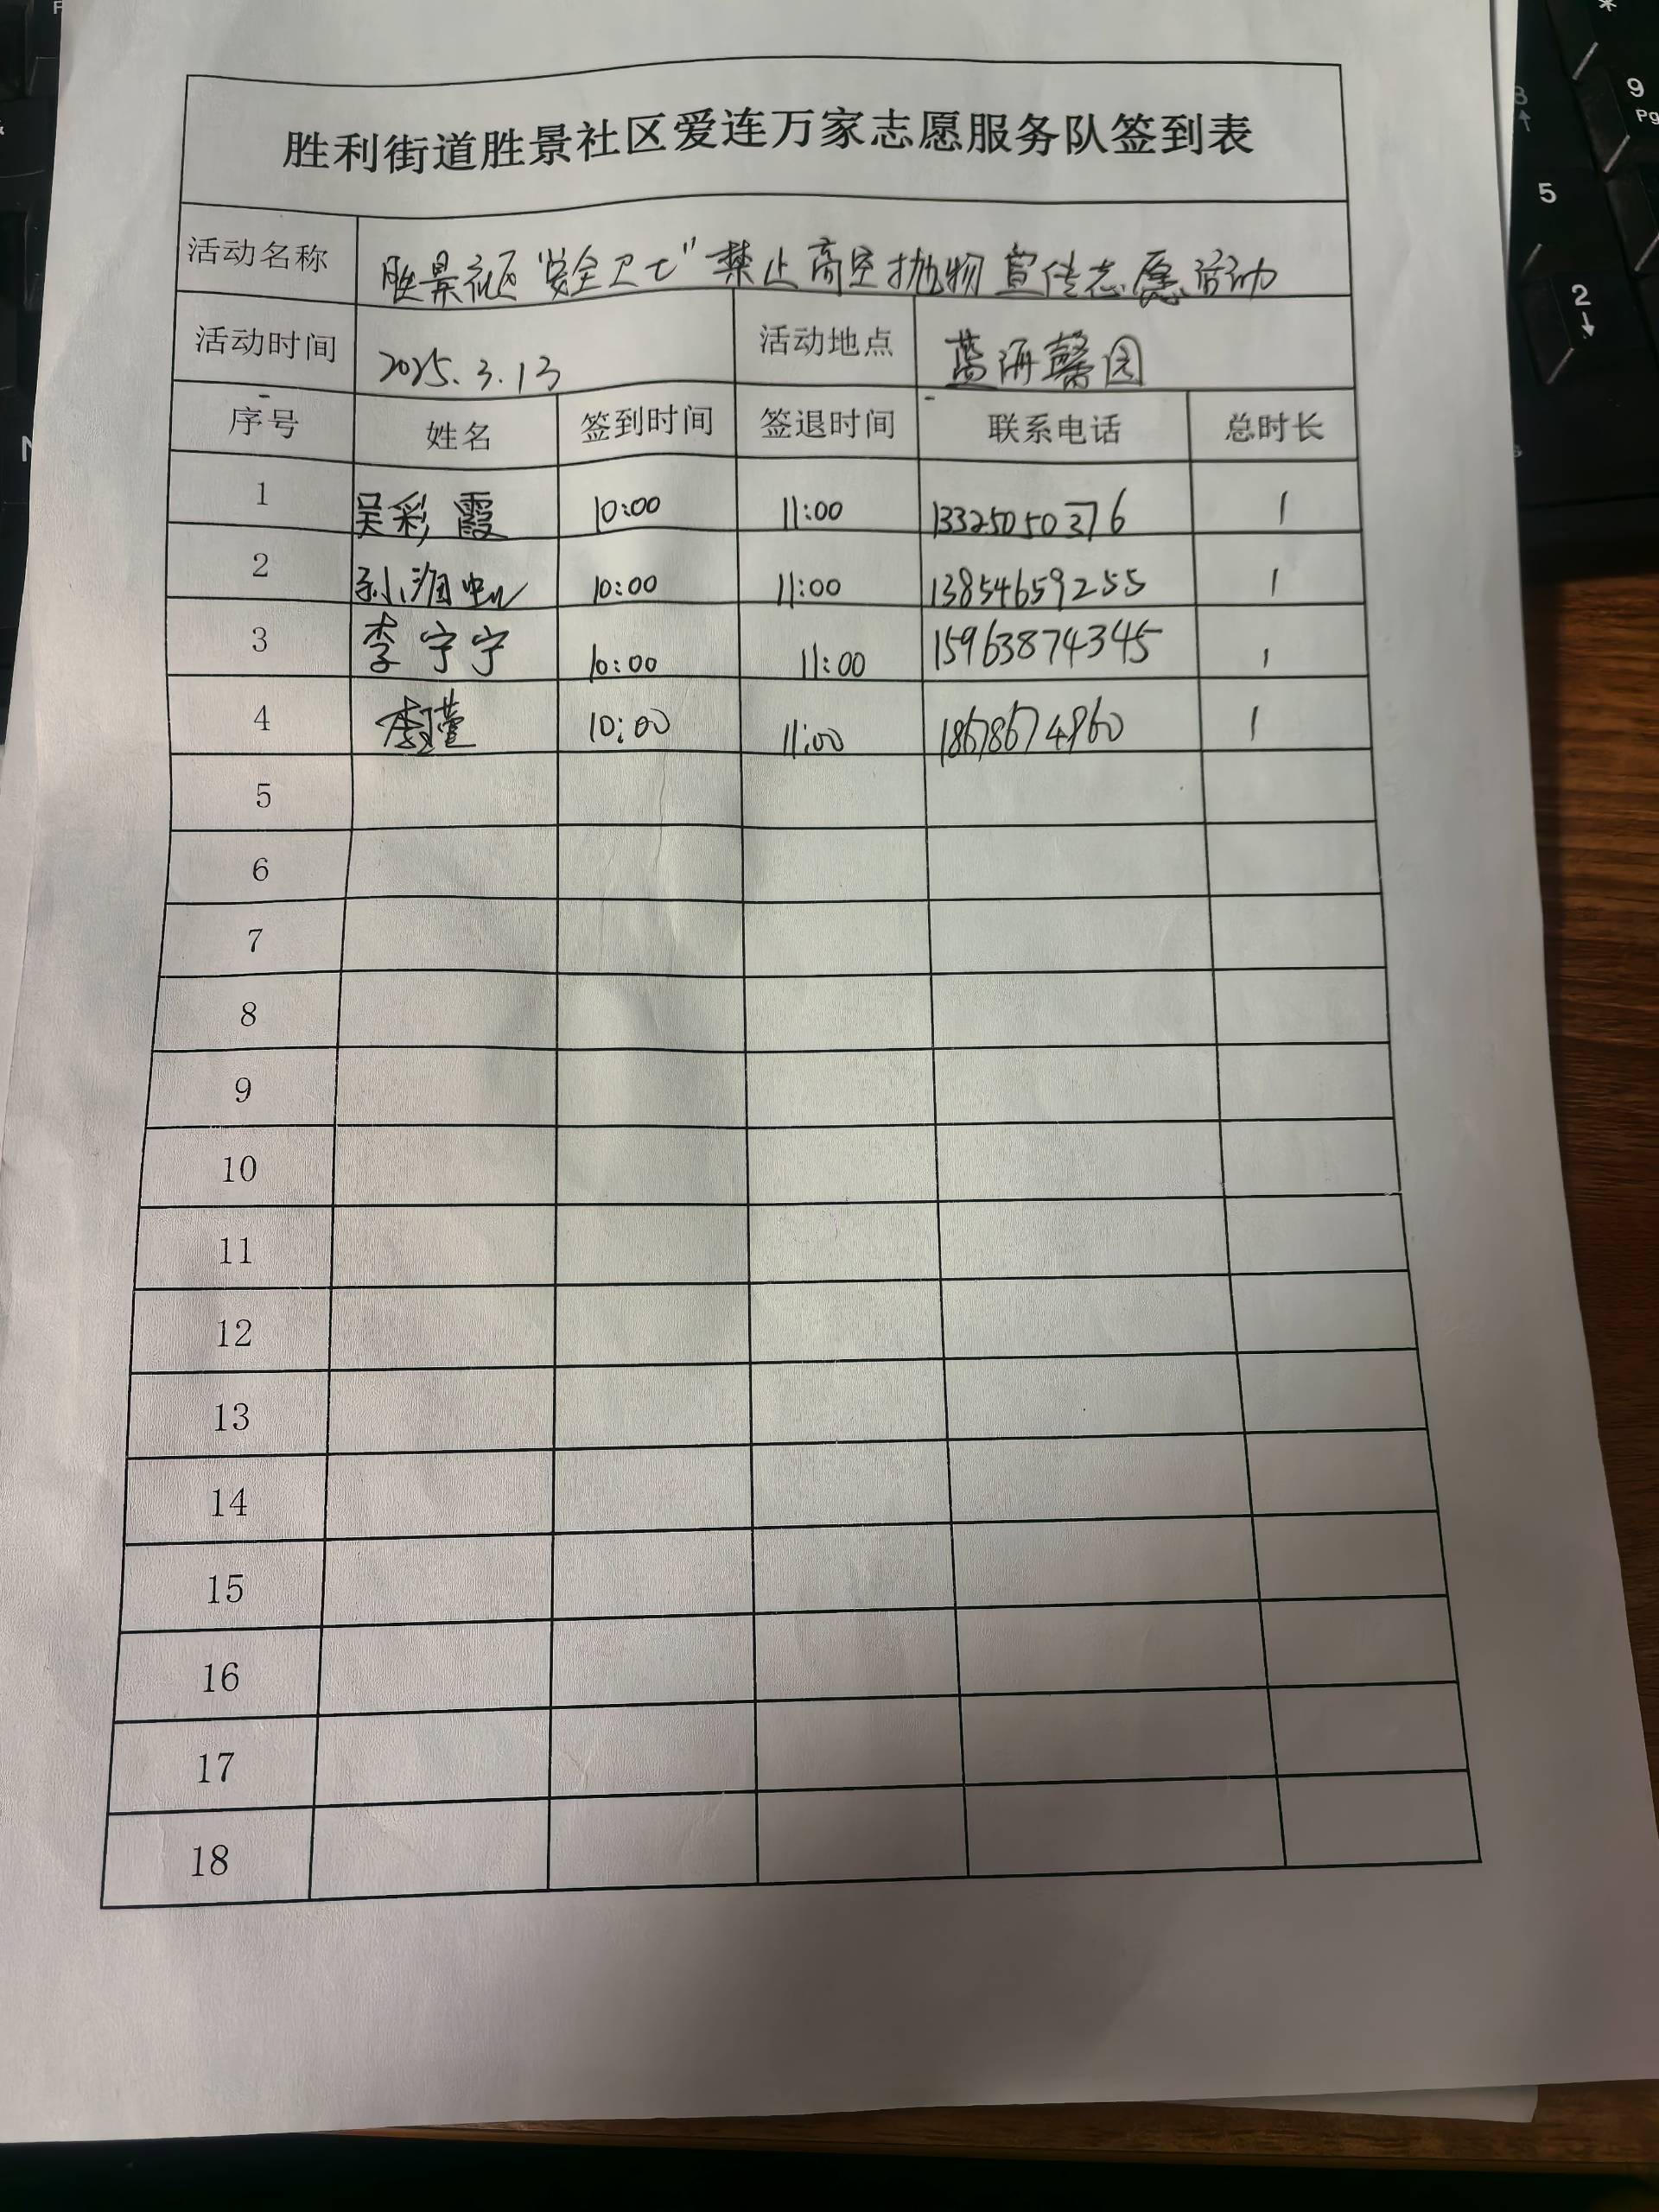 胜利街道胜景社区爱连万家志愿服务队签到表
活动名称 胜景社区“安全卫士”禁止高空抛物宣传志愿活动
活动时间 2025.3.13 活动地点 蓝海馨园
序号 姓名 签到时间 签退时间 联系电话 总时长
1 吴彩霞 10:00 11:00 13325050376 1
2 10:00 11:00 13854659255 1
3 李宁宁 10:00 11:00 15963874345 1
4 10:00 11:00 18678674960 1
5
6
7
8
9
10
11
12
13
14
15
16
17
18
9
5
2